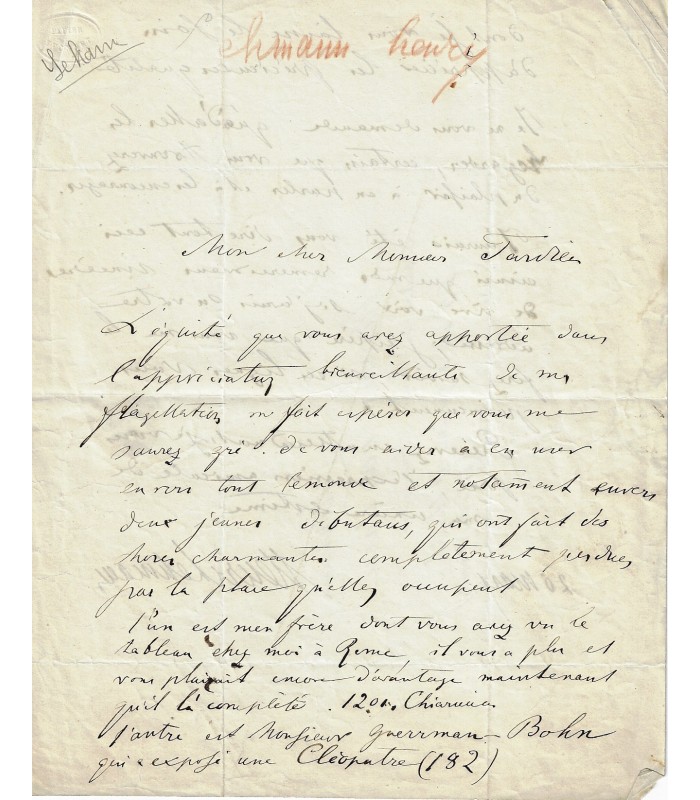 Lehman
ehmann henri
Mon cher Monsieur Tardieu
L'équité que vous avez apportée dans
l'appréciation bienveillante de ma
flagellation me fait espérer que vous me
saurez gré . de vous aider à en user
envers tout lemonde et notament envers
deux jeunes debutans, qui ont fait des
choses charmantes completement perdues
par la place qu'elles occupent
l'un est mon frère dont vous avez vu le
tableau chez moi à Rome, il vous a plu et
vous plairait encore d'avantage maintenant
qu'il l'a complété . 1201.
l'autre est Monsieur Guermann-Bohn
qui a exposé une Cléopatre (182)